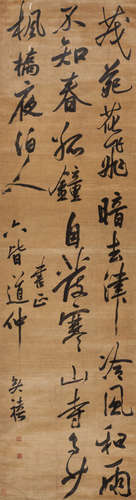 茂苑花飛暗去津冷風和雨
不知春孤鐘自發寒山寺多少
楓橋夜泊人
書正
六皆道仲
吳